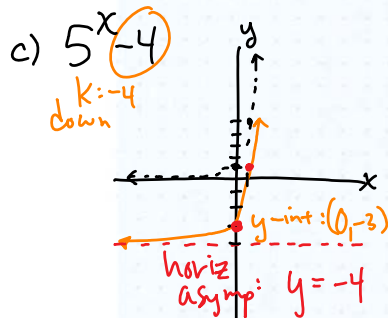 c) 5^x -4
k: -4
down
y
x
y-int: (0,-3)
horiz
asymp: y = -4